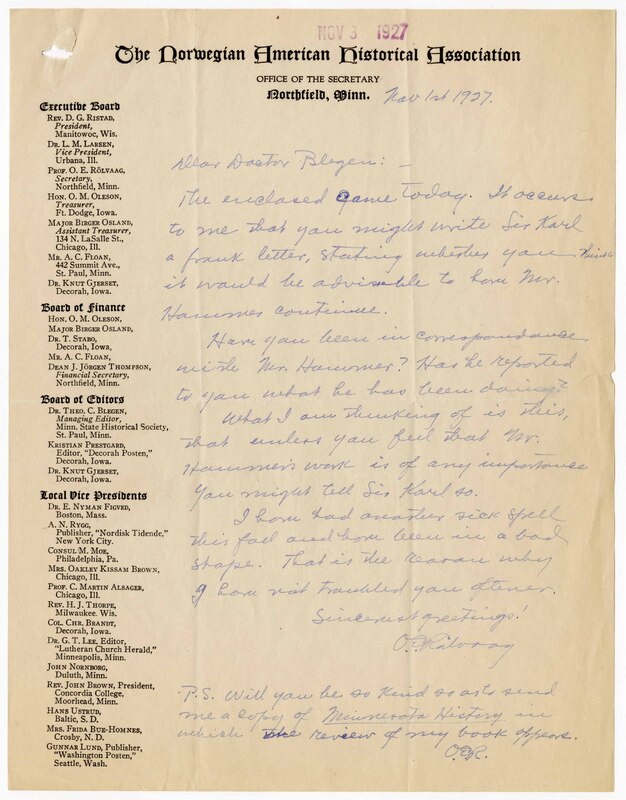 NOV 3 1927
The Norwegian American Historical Association
OFFICE OF THE SECRETARY
Northfield, Minn.
Nov 1st 1927.
Executive Board
REV. D. G. RISTAD,
President,
Manitowoc, Wis.
DR. L. M. LARSEN,
Vice President,
Urbana, Ill.
PROF. O. E. RÖLVAAG,
Secretary,
Northfield, Minn.
HON. O. M. OLESON,
Treasurer,
Ft. Dodge, Iowa.
MAJOR BIRGER OSLAND,
Assistant Treasurer,
134 N. LaSalle St.,
Chicago, Ill.
MR. A. C. FLOAN,
442 Summit Ave.,
St. Paul, Minn.
DR. KNUT GJERSET,
Decorah, Iowa.
Board of Finance
HON. O. M. OLESON,
MAJOR BIRGER OSLAND,
DR. T. STABO,
Decorah, Iowa.
MR. A. C. FLOAN,
DEAN J. JÖRGEN THOMPSON,
Financial Secretary,
Northfield, Minn.
Board of Editors
DR. THEO. C. BLEGEN,
Managing Editor,
Minn. State Historical Society,
St. Paul, Minn.
KRISTIAN PRESTGARD,
Editor, "Decorah Posten,"
Decorah, Iowa.
DR. KNUT GJERSET,
Decorah, Iowa.
Local Vice Presidents
DR. E. NYMAN FIGVED,
Boston, Mass.
A. N. RYGG,
Publisher, "Nordisk Tidende,"
New York City.
CONSUL M. MOE,
Philadelphia, Pa.
MRS. OAKLEY KISSAM BROWN,
Chicago, Ill.
PROF. C. MARTIN ALSAGER,
Chicago, Ill.
REV. H. J. THORPE,
Milwaukee, Wis.
COL. CHR. BRANDT,
Decorah, Iowa.
DR. G. T. LEE, Editor,
"Lutheran Church Herald,"
Minneapolis, Minn.
JOHN NORNBORG,
Duluth, Minn.
REV. JOHN BROWN, President,
Concordia College,
Moorhead, Minn.
HANS USTRUD,
Baltic, S. D.
MRS. FRIDA BUE-HOMNES,
Crosby, N. D.
GUNNAR LUND, Publisher,
"Washington Posten,"
Seattle, Wash.
Dear Doctor Blegen: –
The enclosed came today. It occurs
to me that you might write Sis Karl
a frank letter, stating whether you think
it would be advisable to have Mr.
Hammer continue.
Have you been in correspondance
with Mr. Hammer? Has he reported
to you what he has been doing?
What I am thinking of is this,
that unless you feel that Mr.
Hammer's work is of any importance
you might tell Sis Karl so.
I have had another sick spell
this fall and have been in a bad
shape. That is the reason why
I have not troubled you oftener.
Sincerest greetings!
O E Rölvaag
P.S. Will you be so kind so as to send
me a copy of Minnesota History in
which the review of my book appears.
O.E.R.